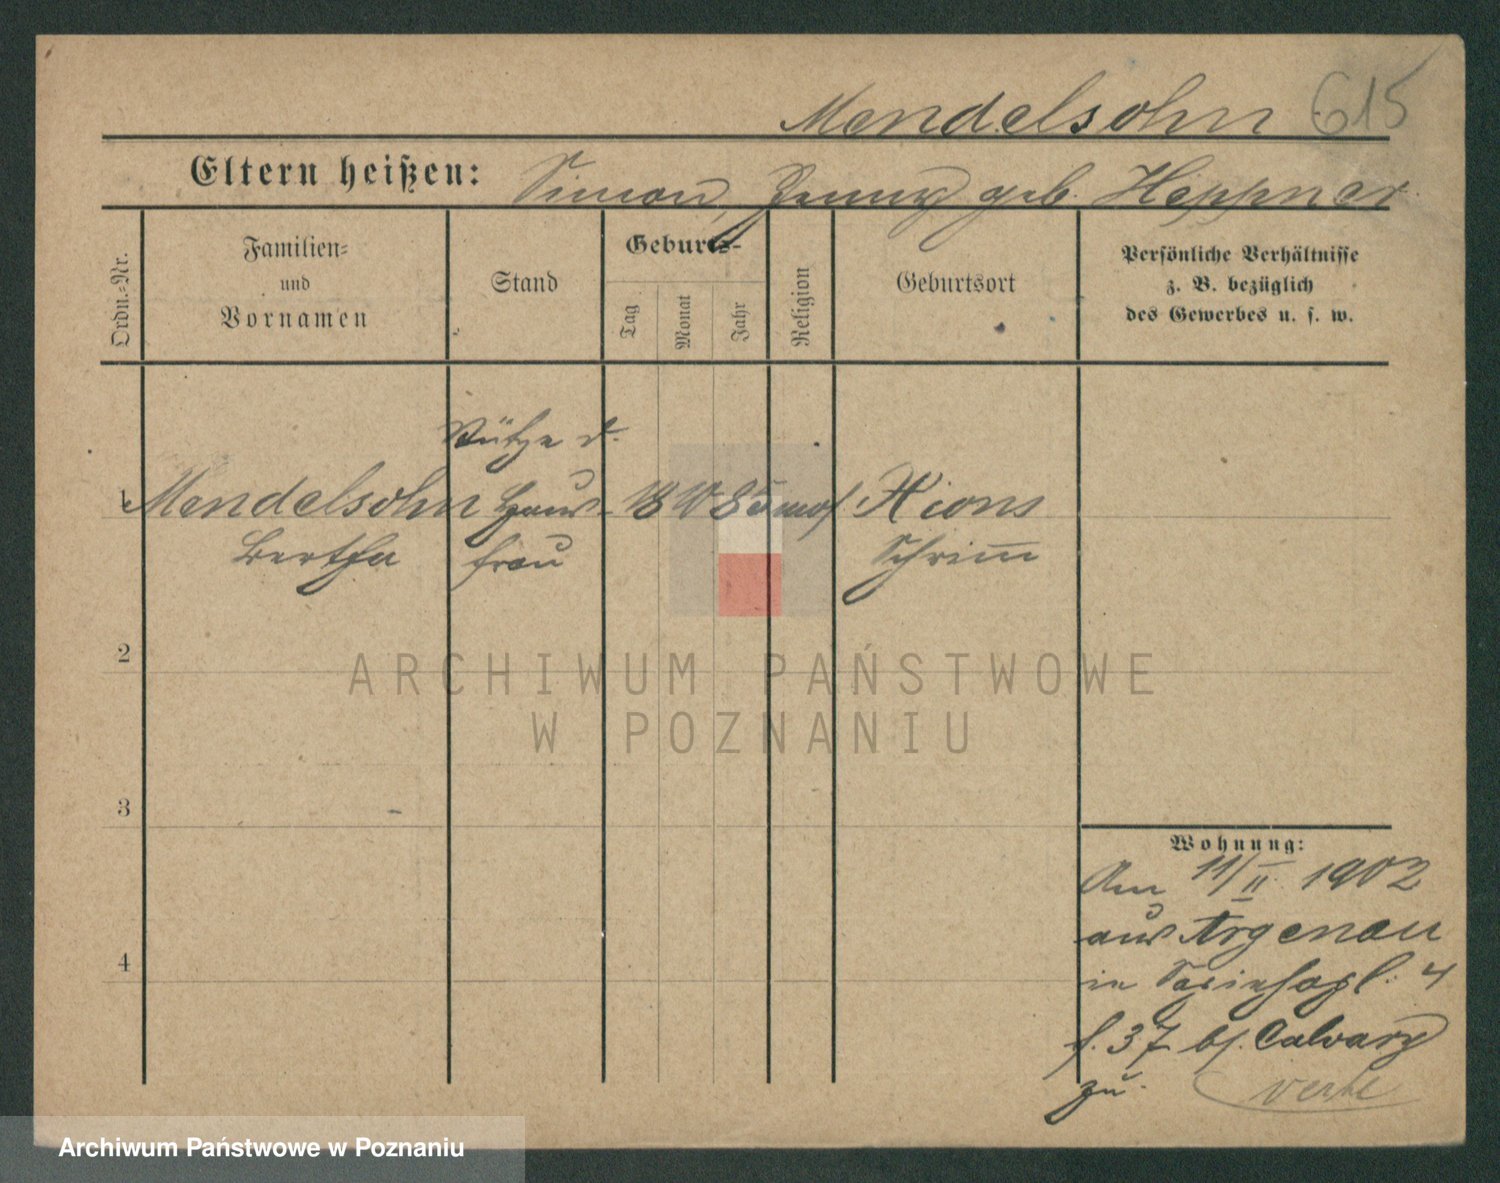 Mendelsohn 615
Eltern heißen: Simon, Jenny geb. Heppner
Ordn.=Nr.
Familien=
und
Vornamen
Stand
Geburts-
Tag
Monat
Jahr
Religion
Geburtsort
Persönliche Verhältnisse
z. B. bezüglich
des Gewerbes u. s. w.
Stütze d.
1 Mendelsohn Haus- 18 10 85 mos. Xions
Bertha frau Schrimm
2
3
4
Wohnung:
Am 11/II 1902
aus Argenau
in 4
f. 37 bei Calvary
zu.
ARCHIWUM PAŃSTWOWE
W POZNANIU
Archiwum Państwowe w Poznaniu